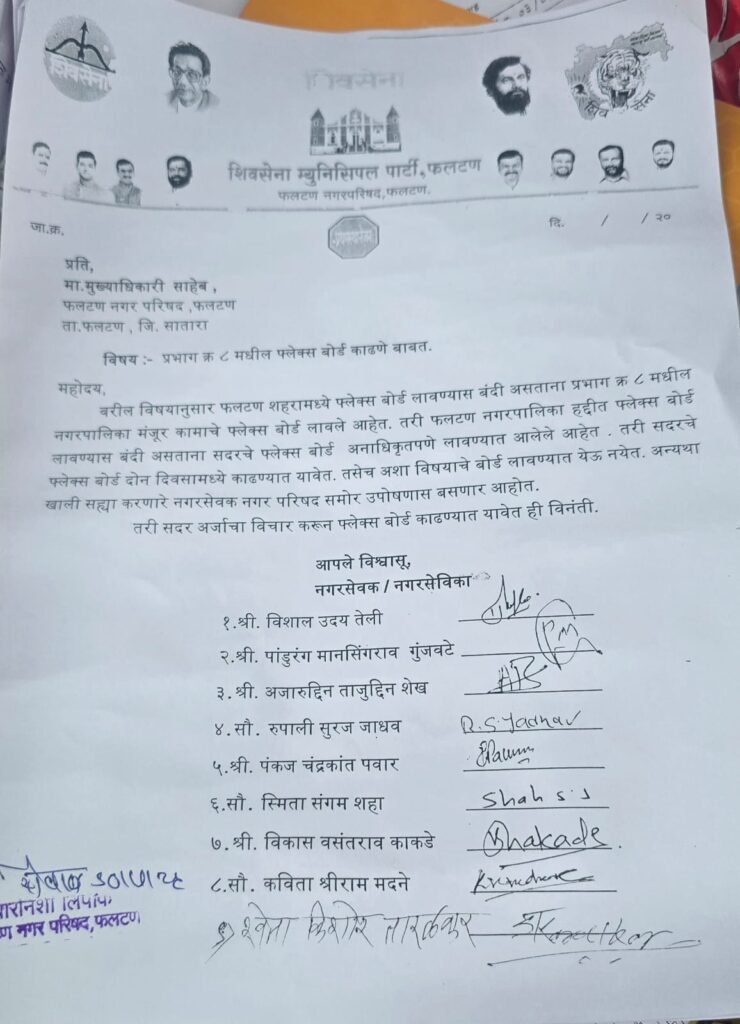 शिवसेना
शिवसेना
शिव सेना
शिवसेना म्युनिसिपल पार्टी,फलटण
फलटण नगरपरिषद,फलटण.
जा.क्र.
दि. / / २०
प्रति,
मा.मुख्याधिकारी साहेब ,
फलटण नगर परिषद ,फलटण
ता.फलटण , जि. सातारा
विषय :- प्रभाग क्र ८ मधील फ्लेक्स बोर्ड काढणे बाबत.
महोदय,
वरील विषयानुसार फलटण शहरामध्ये फ्लेक्स बोर्ड लावण्यास बंदी असताना प्रभाग क्र ८ मधील
नगरपालिका मंजूर कामाचे फ्लेक्स बोर्ड लावले आहेत. तरी फलटण नगरपालिका हद्दीत फ्लेक्स बोर्ड
लावण्यास बंदी असताना सदरचे फ्लेक्स बोर्ड अनाधिकृतपणे लावण्यात आलेले आहेत . तरी सदरचे
फ्लेक्स बोर्ड दोन दिवसामध्ये काढण्यात यावेत. तसेच अशा विषयाचे बोर्ड लावण्यात येऊ नयेत. अन्यथा
खाली सह्या करणारे नगरसेवक नगर परिषद समोर उपोषणास बसणार आहोत.
तरी सदर अर्जाचा विचार करून फ्लेक्स बोर्ड काढण्यात यावेत ही विनंती.
आपले विश्वासू,
नगरसेवक / नगरसेविका
१.श्री. विशाल उदय तेली
२.श्री. पांडुरंग मानसिंगराव गुंजवटे
३.श्री. अजारुद्दिन ताजुद्दिन शेख
४.सौ. रुपाली सुरज जाधव R.S.Jadhav
५.श्री. पंकज चंद्रकांत पवार
६.सौ. स्मिता संगम शहा Shah S.S
७.श्री. विकास वसंतराव काकडे
८.सौ. कविता श्रीराम मदने
९) श्वेता किशोर तारळकर
नगर परिषद,फलटण